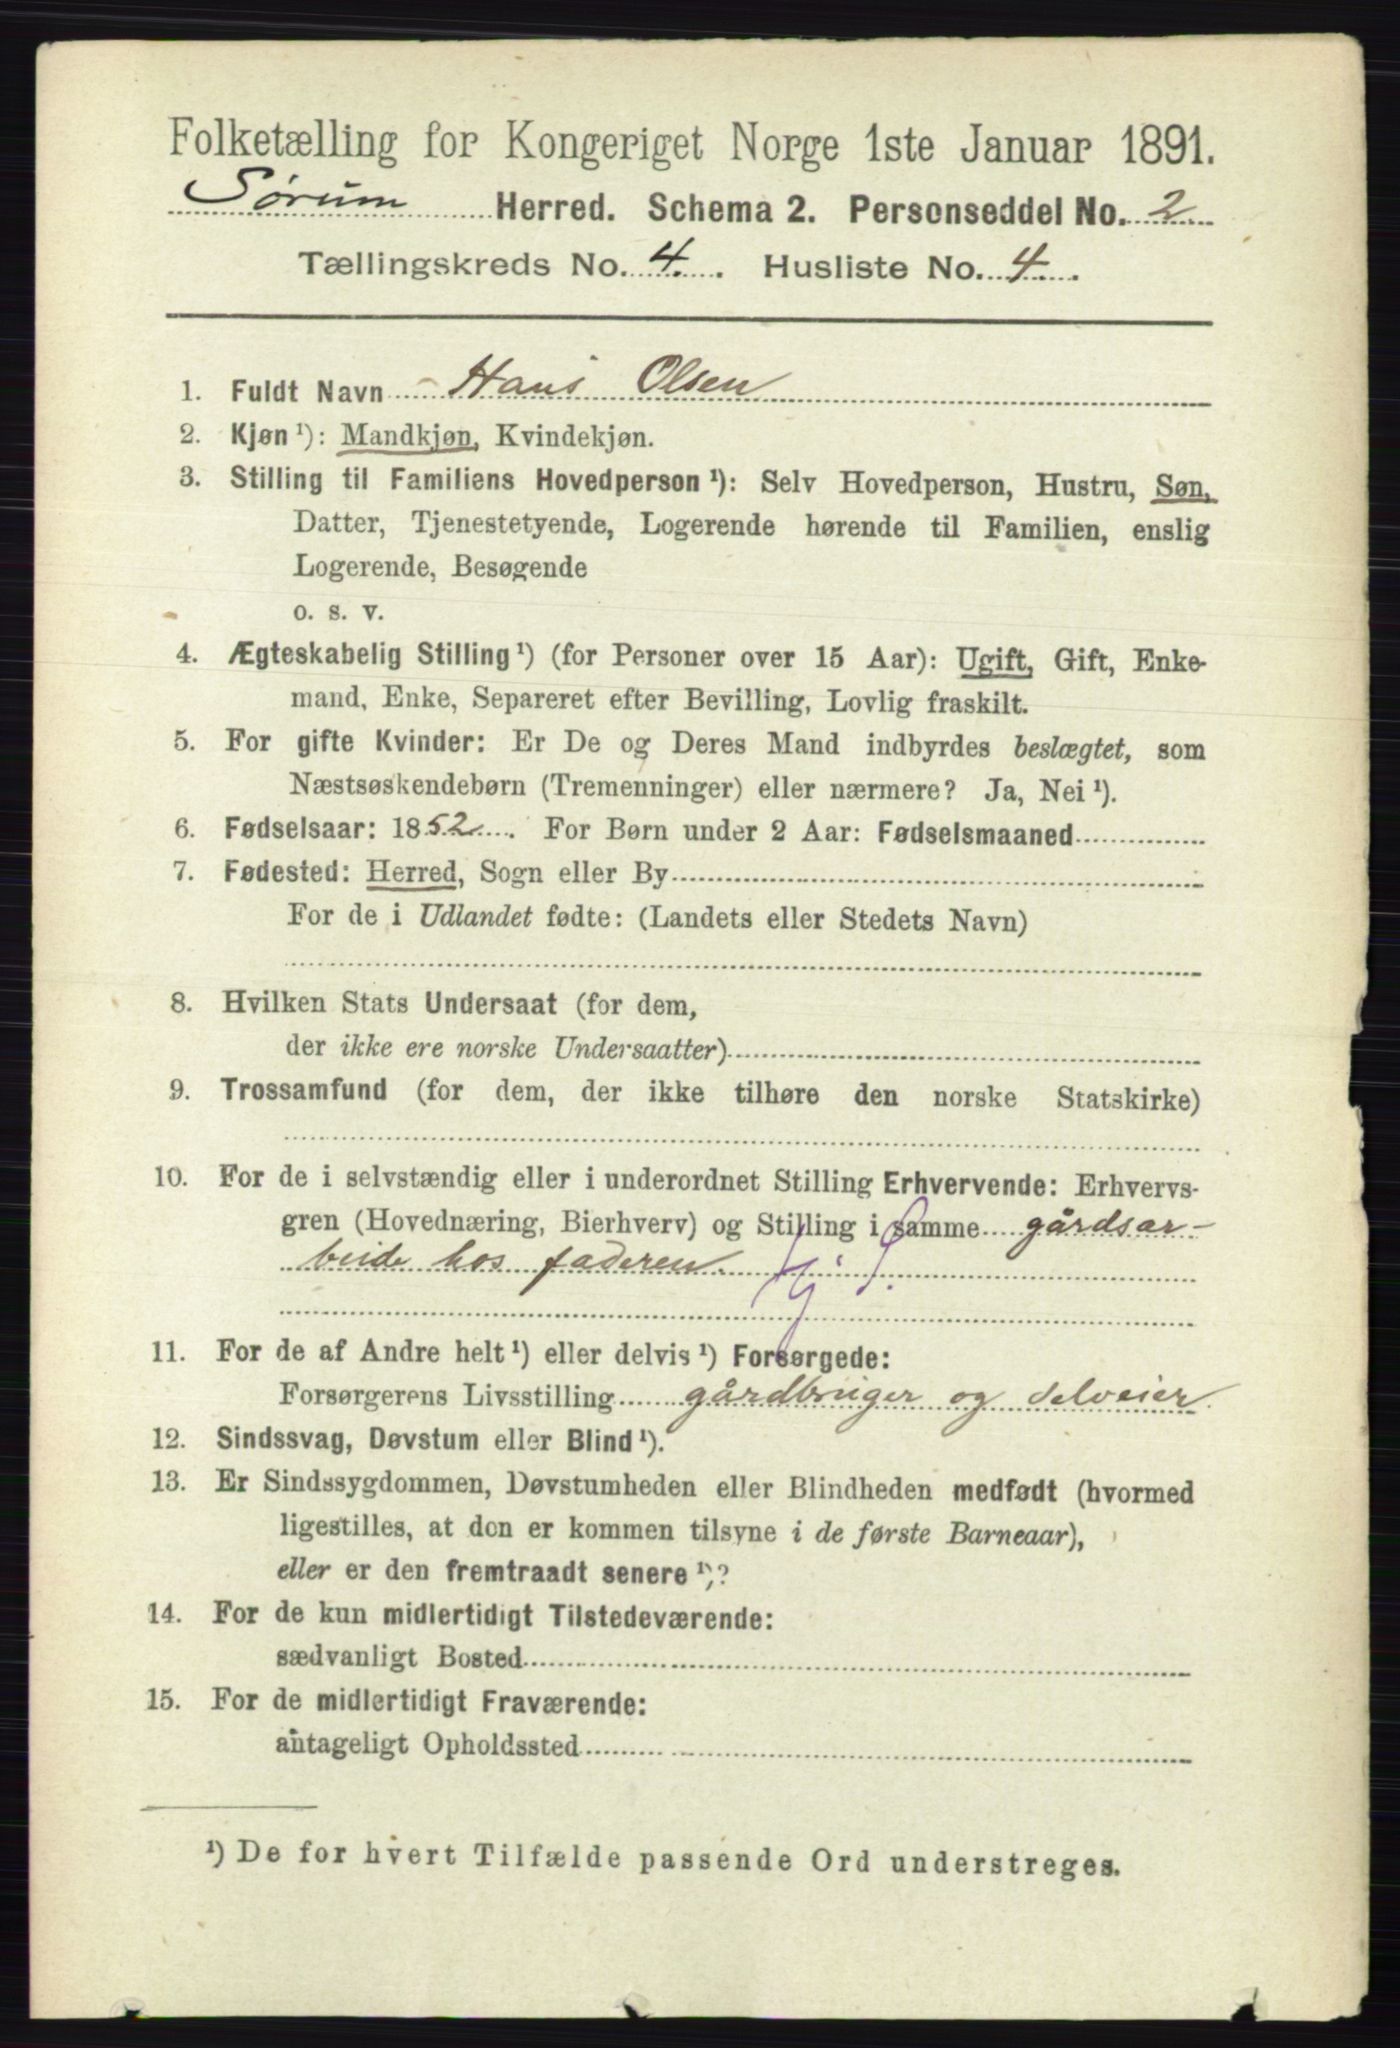 Folketælling for Kongeriget Norge 1ste Januar 1891.
Sørum Herred. Schema 2. Personseddel No. 2
Tællingskreds No. 4. Husliste No. 4.
1. Fuldt Navn Hans Olsen
2. Kjøn ¹): Mandkjøn, Kvindekjøn.
3. Stilling til Familiens Hovedperson ¹): Selv Hovedperson, Hustru, Søn,
Datter, Tjenestetyende, Logerende hørende til Familien, enslig
Logerende, Besøgende
o. s. v.
4. Ægteskabelig Stilling ¹) (for Personer over 15 Aar): Ugift, Gift, Enke-
mand, Enke, Separeret efter Bevilling, Lovlig fraskilt.
5. For gifte Kvinder: Er De og Deres Mand indbyrdes beslægtet, som
Næstsøskendebørn (Tremenninger) eller nærmere? Ja, Nei ¹).
6. Fødselsaar: 1852. For Børn under 2 Aar: Fødselsmaaned
7. Fødested: Herred, Sogn eller By
For de i Udlandet fødte: (Landets eller Stedets Navn)
8. Hvilken Stats Undersaat (for dem,
der ikke ere norske Undersaatter)
9. Trossamfund (for dem, der ikke tilhøre den norske Statskirke)
10. For de i selvstændig eller i underordnet Stilling Erhvervende: Erhvervs-
gren (Hovednæring, Bierhverv) og Stilling i samme gårdsar-
beide hos faderen.
11. For de af Andre helt ¹) eller delvis ¹) Forsørgede:
Forsørgerens Livsstilling gårdbruger og selveier.
12. Sindssvag, Døvstum eller Blind ¹).
13. Er Sindssygdommen, Døvstumheden eller Blindheden medfødt (hvormed
ligestilles, at den er kommen tilsyne i de første Barneaar),
eller er den fremtraadt senere ¹)?
14. For de kun midlertidigt Tilstedeværende:
sædvanligt Bosted
15. For de midlertidigt Fraværende:
antageligt Opholdssted
¹) De for hvert Tilfælde passende Ord understreges.